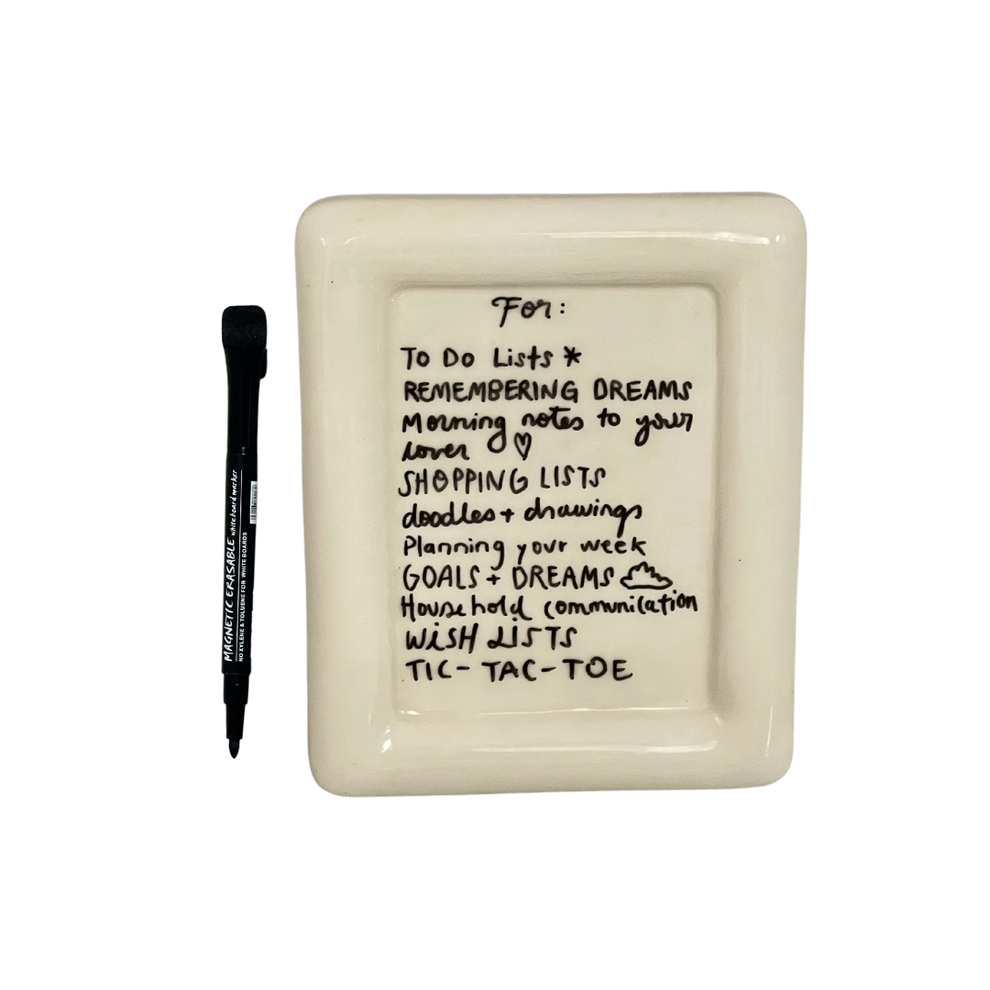 For:
To Do Lists *
REMEMBERING DREAMS
Morning notes to your
lover ♡
SHOPPING LISTS
doodles + drawings
Planning your week
GOALS + DREAMS
Household communication
WiSH LISTS
TIC-TAC-TOE
MAGNETIC ERASABLE whiteboard marker
NO XYLENE & TOLUENE FOR WHITE BOARDS